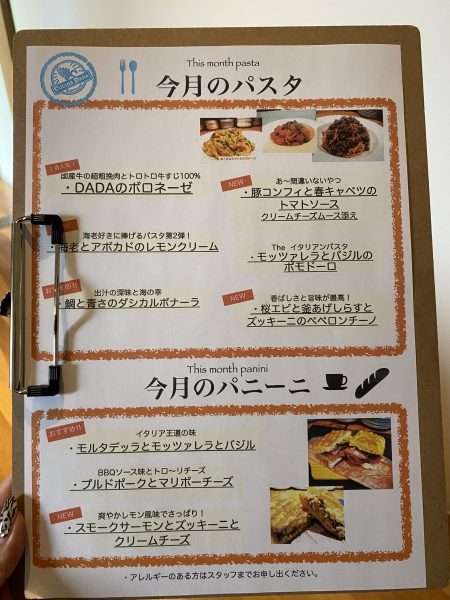 This month pasta
今月のパスタ
1番人気!
国産牛の超粗挽肉とトロトロ牛すじ100%
・DADAのボロネーゼ
海老好きに捧げるパスタ第2弾!
・海老とアボカドのレモンクリーム
おすすめ!!
出汁の深味と海の幸
・鯛と青さのダシカルボナーラ
NEW
あ〜間違いないやつ
・豚コンフィと春キャベツの
トマトソース
クリームチーズムース添え
The イタリアンパスタ
・モッツァレラとバジルの
ポモドーロ
NEW
香ばしさと旨味が最高!
・桜エビと釜あげしらすと
ズッキーニのペペロンチーノ
This month panini
今月のパニーニ
おすすめ!!
イタリア王道の味
・モルタデッラとモッツァレラとバジル
BBQソース味とトローリチーズ
・プルドポークとマリボーチーズ
NEW
爽やかレモン風味でさっぱり!
・スモークサーモンとズッキーニと
クリームチーズ
・アレルギーのある方はスタッフまでお申し出ください。